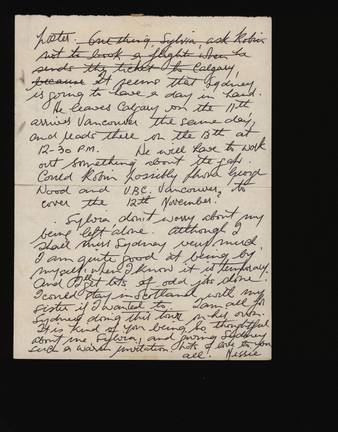 later. One thing, Sylvia, ask Robin
not to book a flight when he
sends the ticket to Calgary,
because it seems that Sydney
is going to have a day in hand.
He leaves Calgary on the 11th
arrives Vancouver the same day
and leads there on the 13th at
12-30 P.M. He will have to work
out something about the gap.
Could Robin possibly phone George
Wood and U.B.C. Vancouver, to
cover the 12th November.
Sylvia don't worry about my
being left alone. Although I
shall miss Sydney very much,
I am quite good at being by
myself, when I know it is temporary.
And I get lots of odd jobs done.
I could stay in Scotland with my
sister if I wanted to. I am all for
Sydney doing this tour on his own.
It is kind of you being so thoughtful
about me Sylvia, and giving Sydney
such a warm invitation. Lots of love to you
all! Nessie